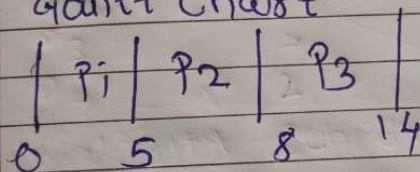 Gantt Chart
P1 P2 P3
0 5 8 14